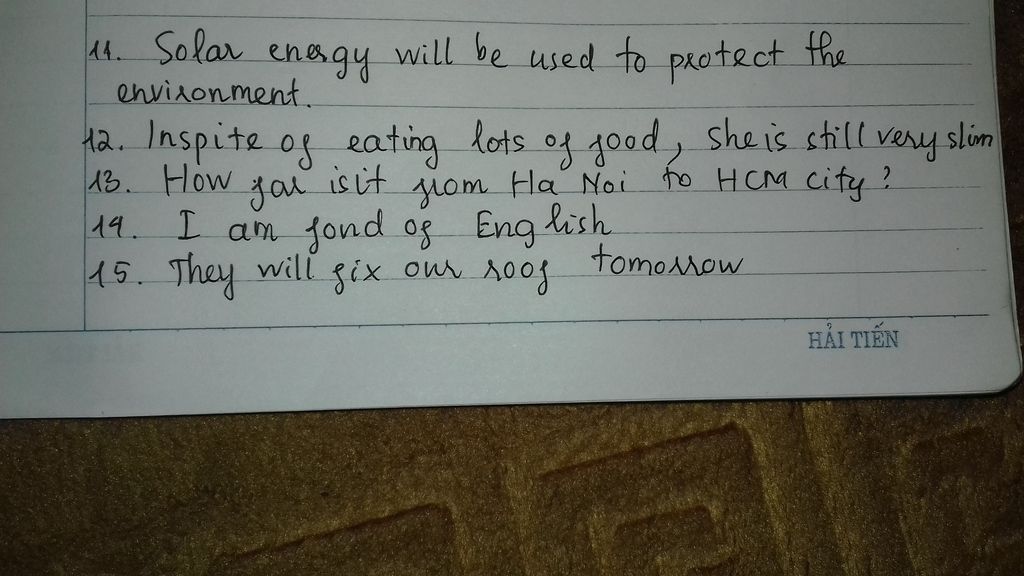 11. Solar energy will be used to protect the
environment.
12. Inspite of eating lots of food, she is still very slim
13. How far is it from Ha Noi to HCM city?
14. I am fond of English
15. They will fix our roof tomorrow
HẢI TIẾN